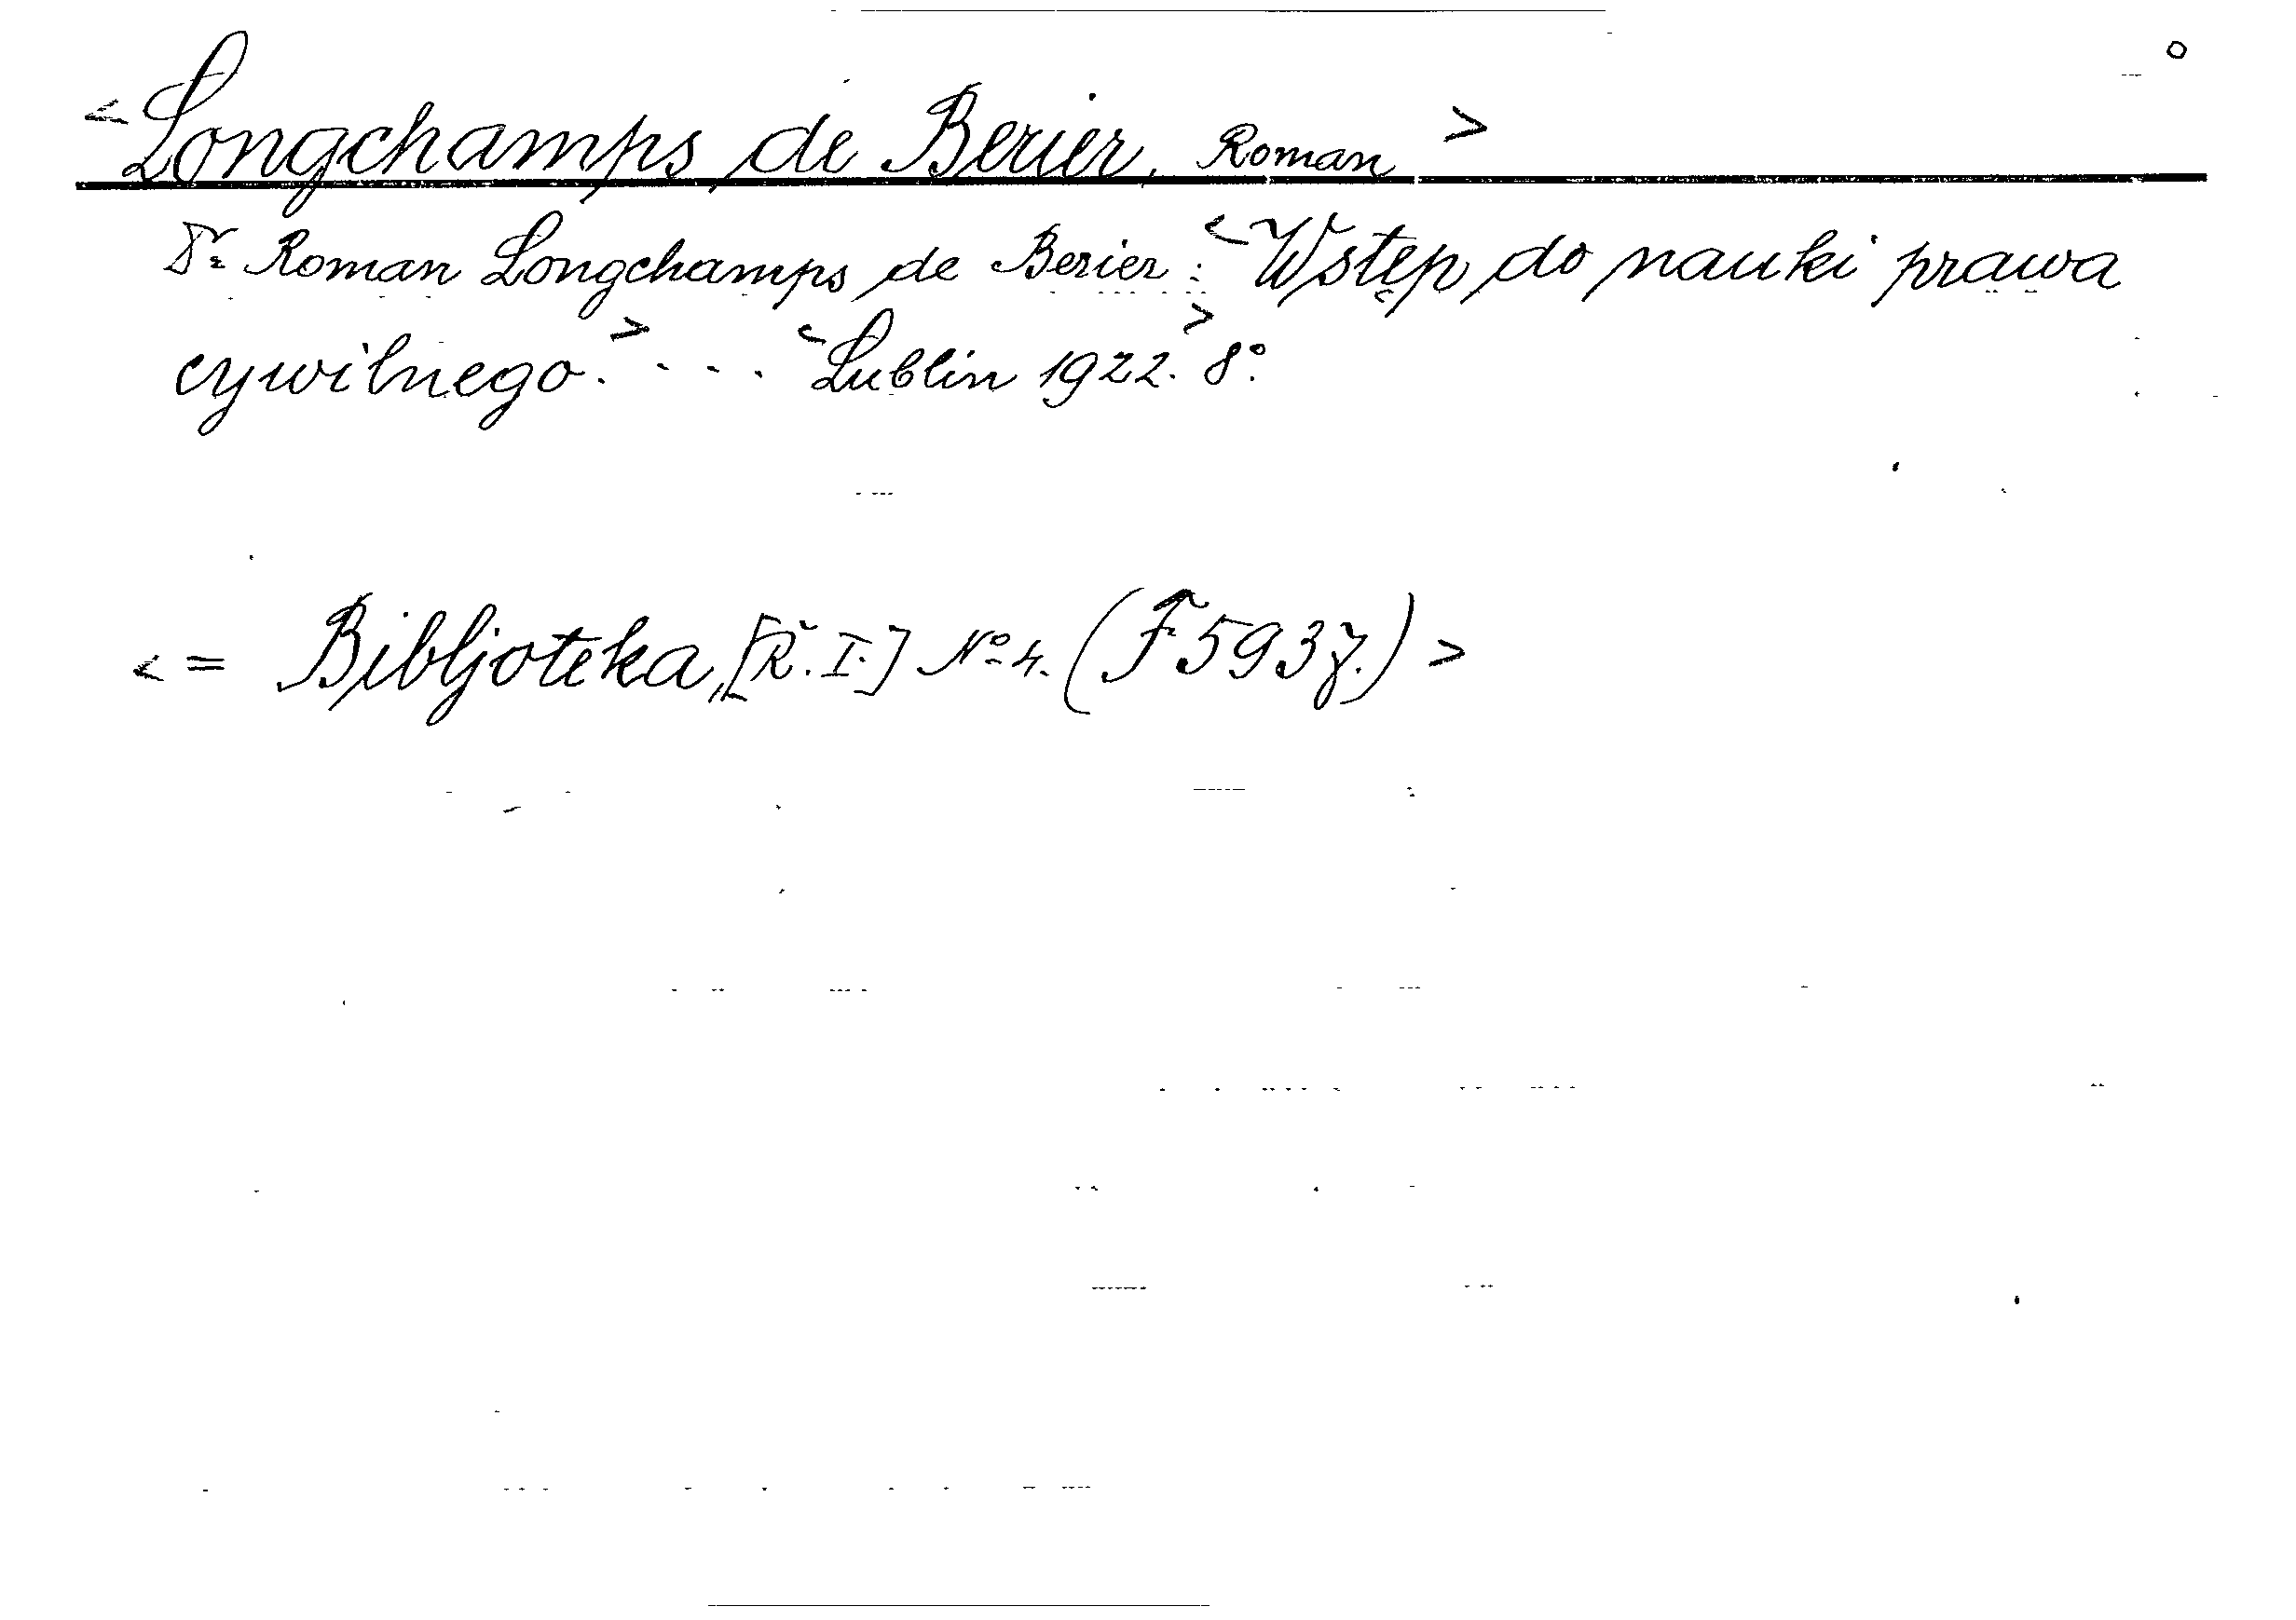 <Longchamps de Berier, Roman>
Dr. Roman Longchamps de Berier: <Wstęp do nauki prawa
cywilnego.> ... <Lublin 1922.> 8º.
<= Bibljoteka, [Ř. I.] Nº 4. (F 5937.)>